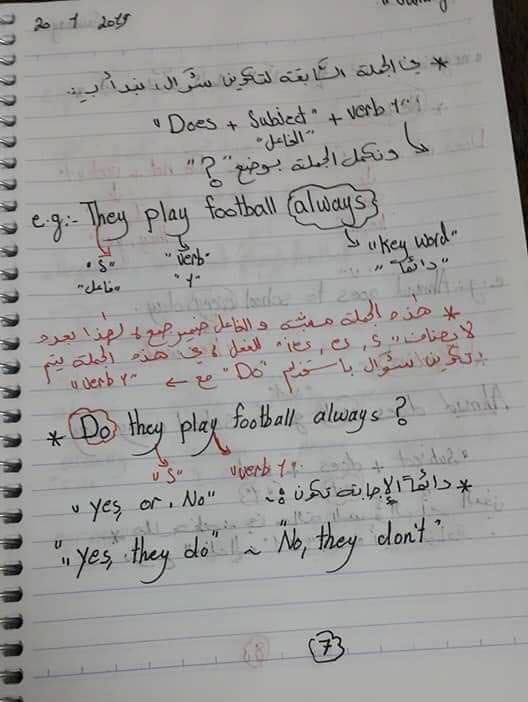 20 1 2019
* في الجملة السابقة لتكوين سؤال، نبدأ بـ:
"Does + Subject" + verb 1"?
"الفاعل"
ونكمل الجملة بوضع "؟"
e.g:- They play football always
"S" "verb" "Key word"
"فاعل" "1" "دائماً"
* هذه الجملة مثبتة والفاعل ضمير جمع لهذا بعده
لا يضاف "ies, es, s" للفعل في هذه الجملة يتم
تكوين سؤال باستخدام "Do" مع ← "verb 1"
* Do they play football always?
"S" "verb 1"
* دائماً الإجابة تكون :~ "yes, or, No"
"yes, they do" ~ "No, they don't"
7